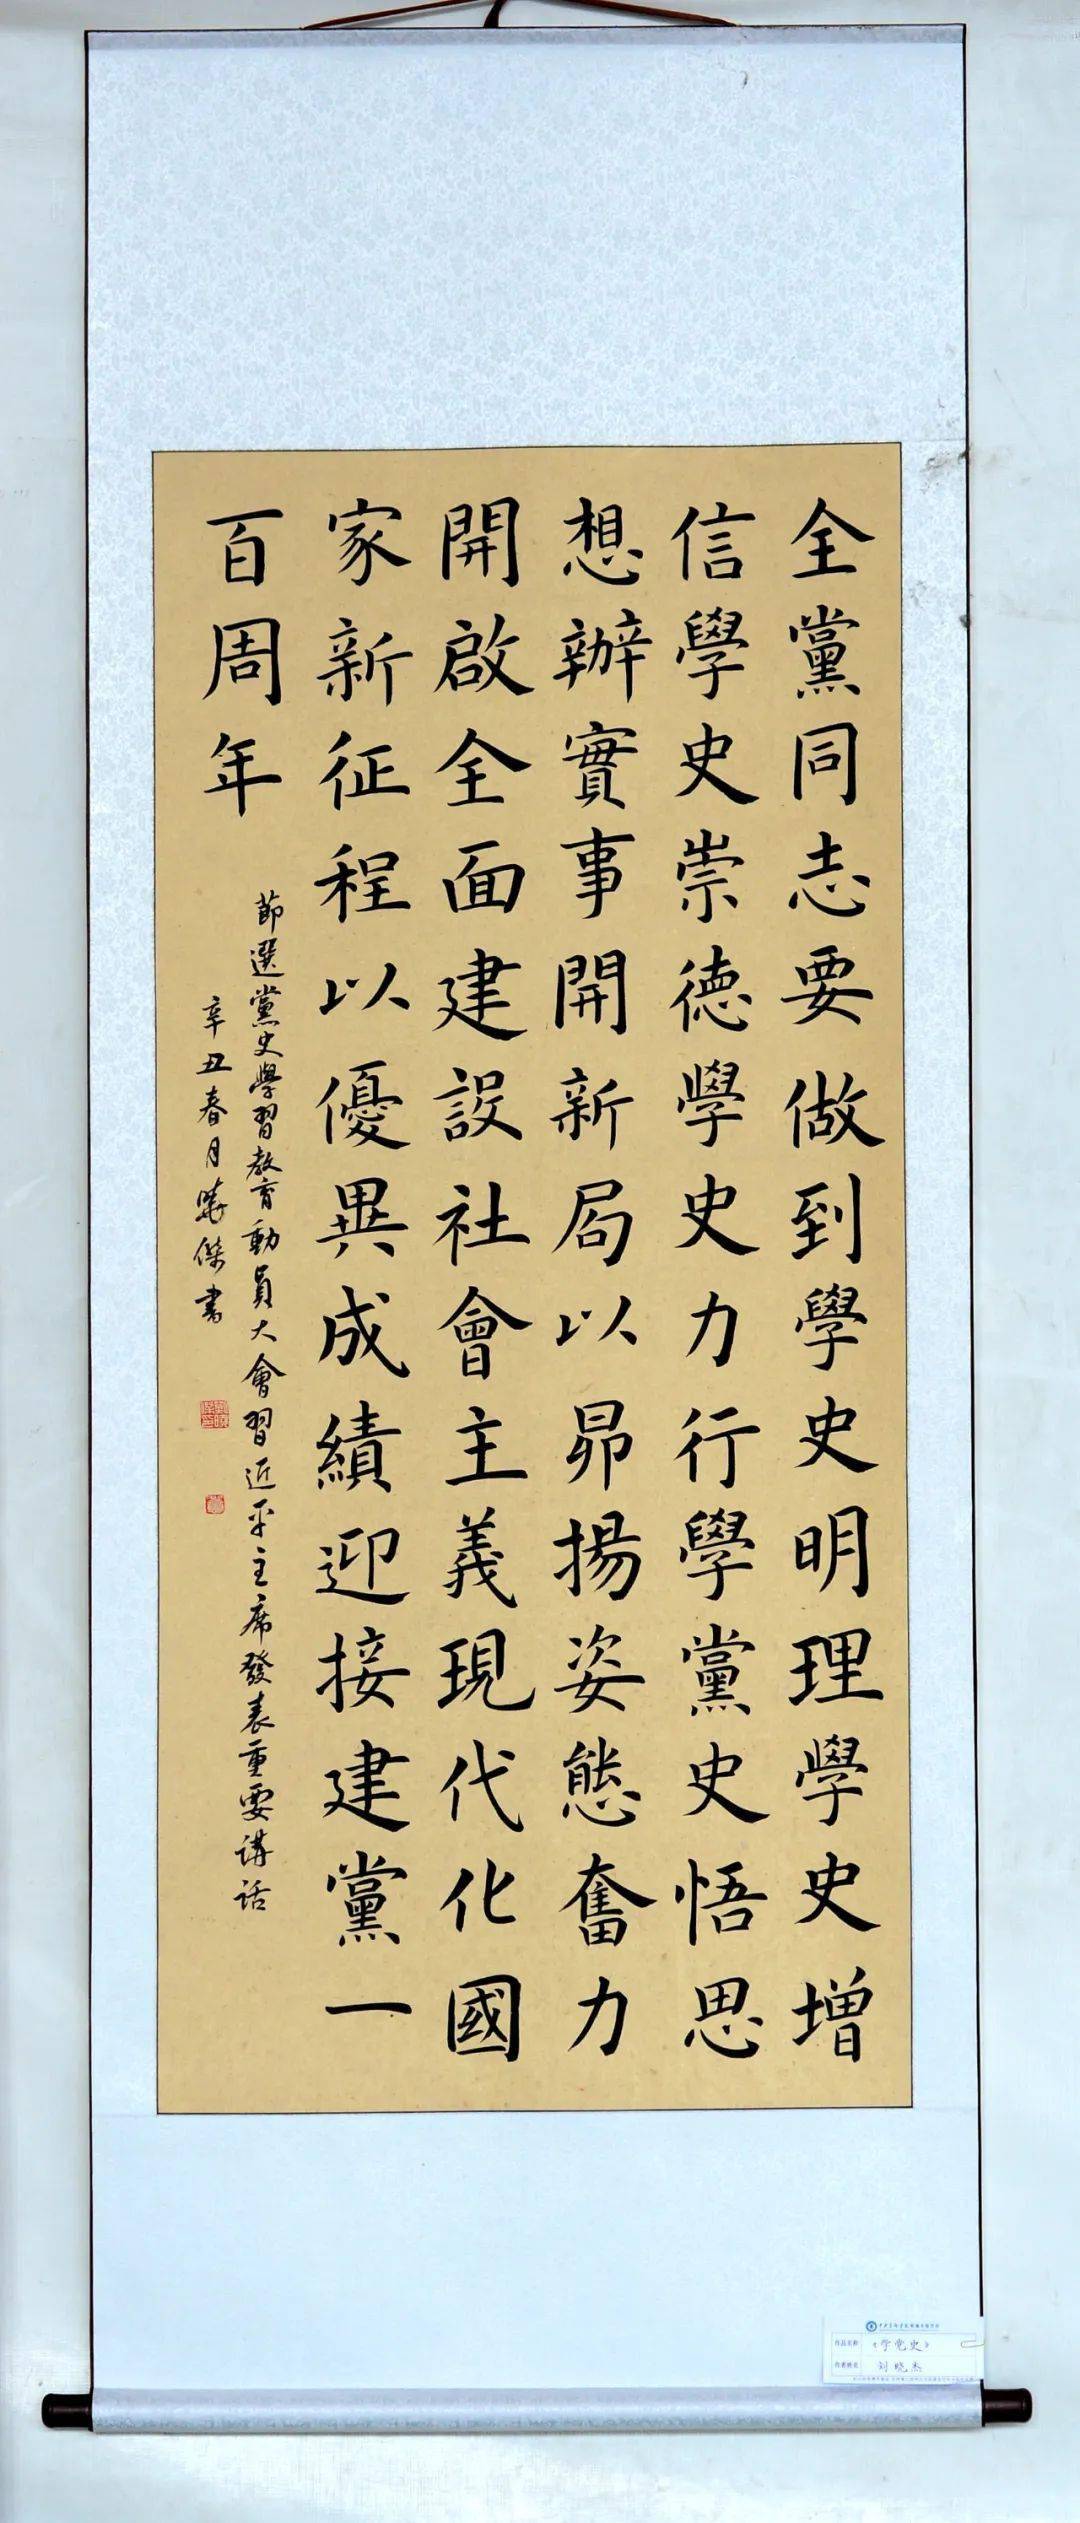 全黨同志要做到學史明理學史增
信學史崇德學史力行學黨史悟思
想辦實事開新局以昴揚姿態奮力
開啟全面建設社會主義現代化國
家新征程以優異成績迎接建黨一
百周年
節選黨史學習教育動員大會習近平主席發表重要講話
辛丑春月曉傑書
作品名称 《学党史》
作者姓名 刘晓杰